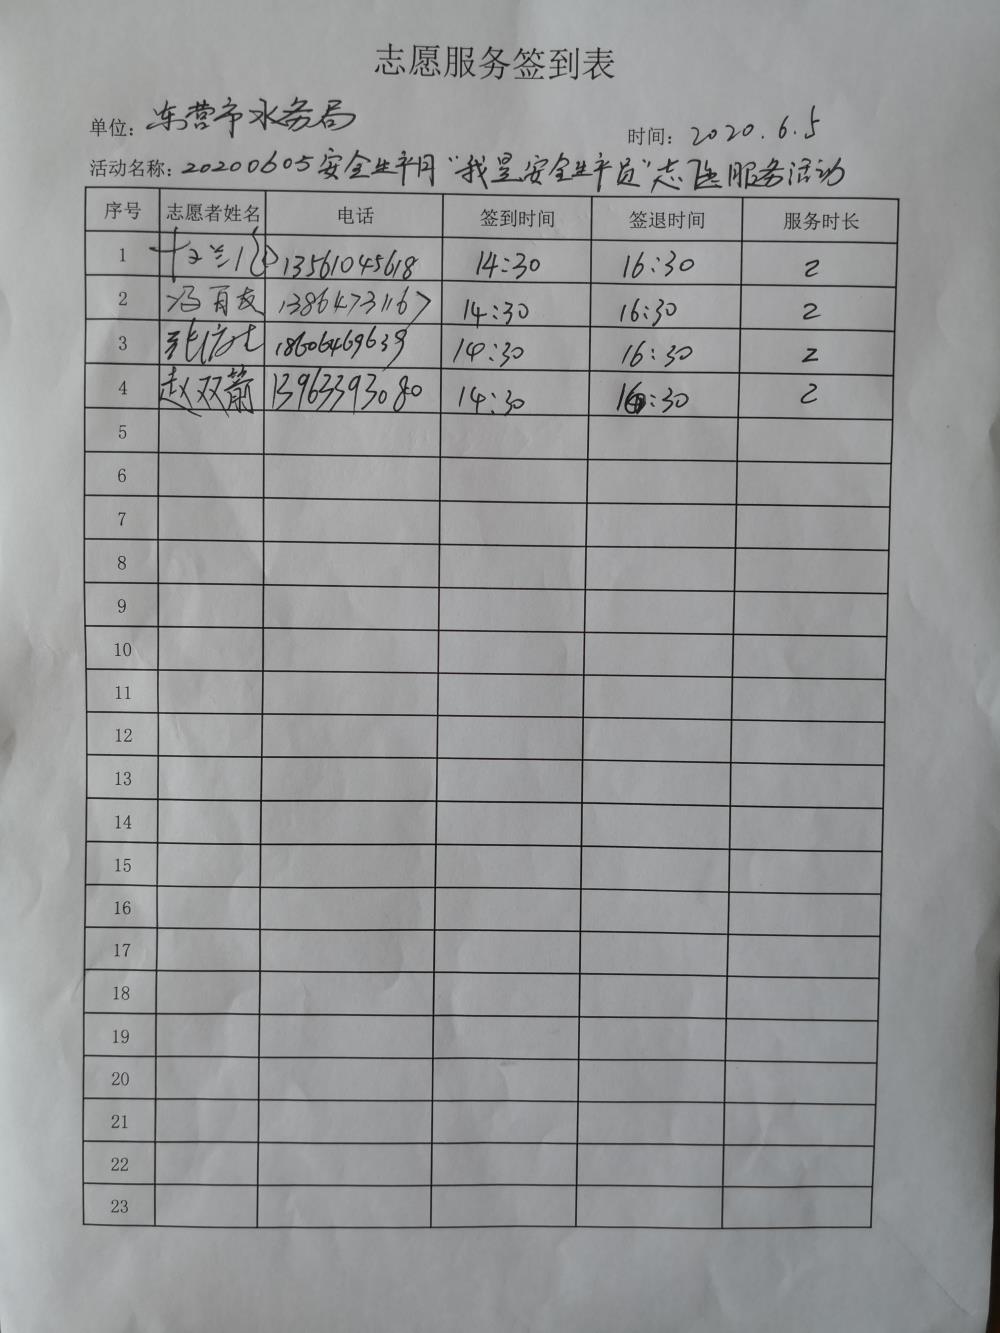 志愿服务签到表
单位：东营市水务局 时间：2020.6.5
活动名称：20200605安全生产月"我是安全生产员"志愿服务活动
序号 志愿者姓名 电话 签到时间 签退时间 服务时长
1 13561045618 14:30 16:30 2
2 13864731167 14:30 16:30 2
3 18606469639 14:30 16:30 2
4 赵双箭 13963393080 14:30 16:30 2
5
6
7
8
9
10
11
12
13
14
15
16
17
18
19
20
21
22
23